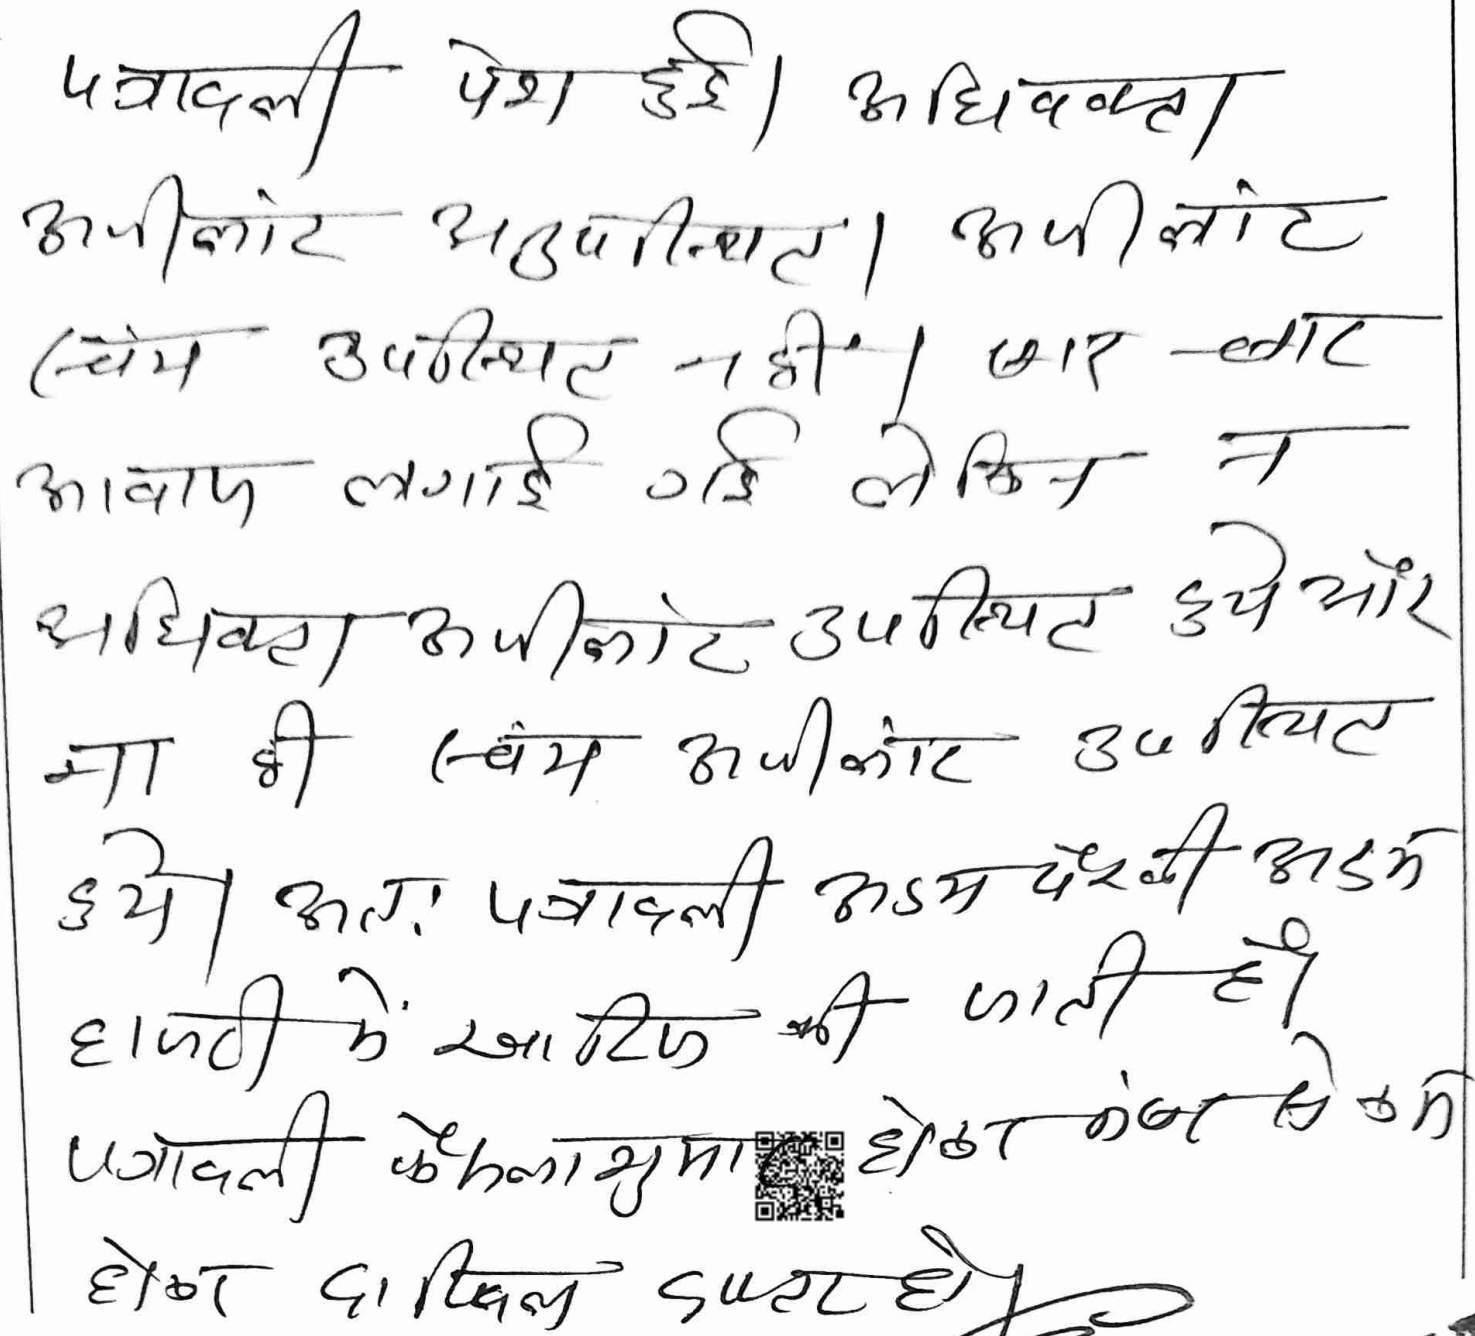 पत्रावली पेश हुई। अधिवक्ता
अपीलांट अनुपस्थित। अपीलांट
स्वंय उपस्थित नहीं। बार बार
आवाज लगाई गई लेकिन न
अधिवक्ता अपीलांट उपस्थित हुये और
ना ही स्वंय अपीलांट उपस्थित
हुये। अतः पत्रावली अदम पैरवी अदम
हाजरी में खारिज की जाती है।
पत्रावली फैसला शुमार होकर नंबर से कम
होकर दाखिल दफ्तर हो।